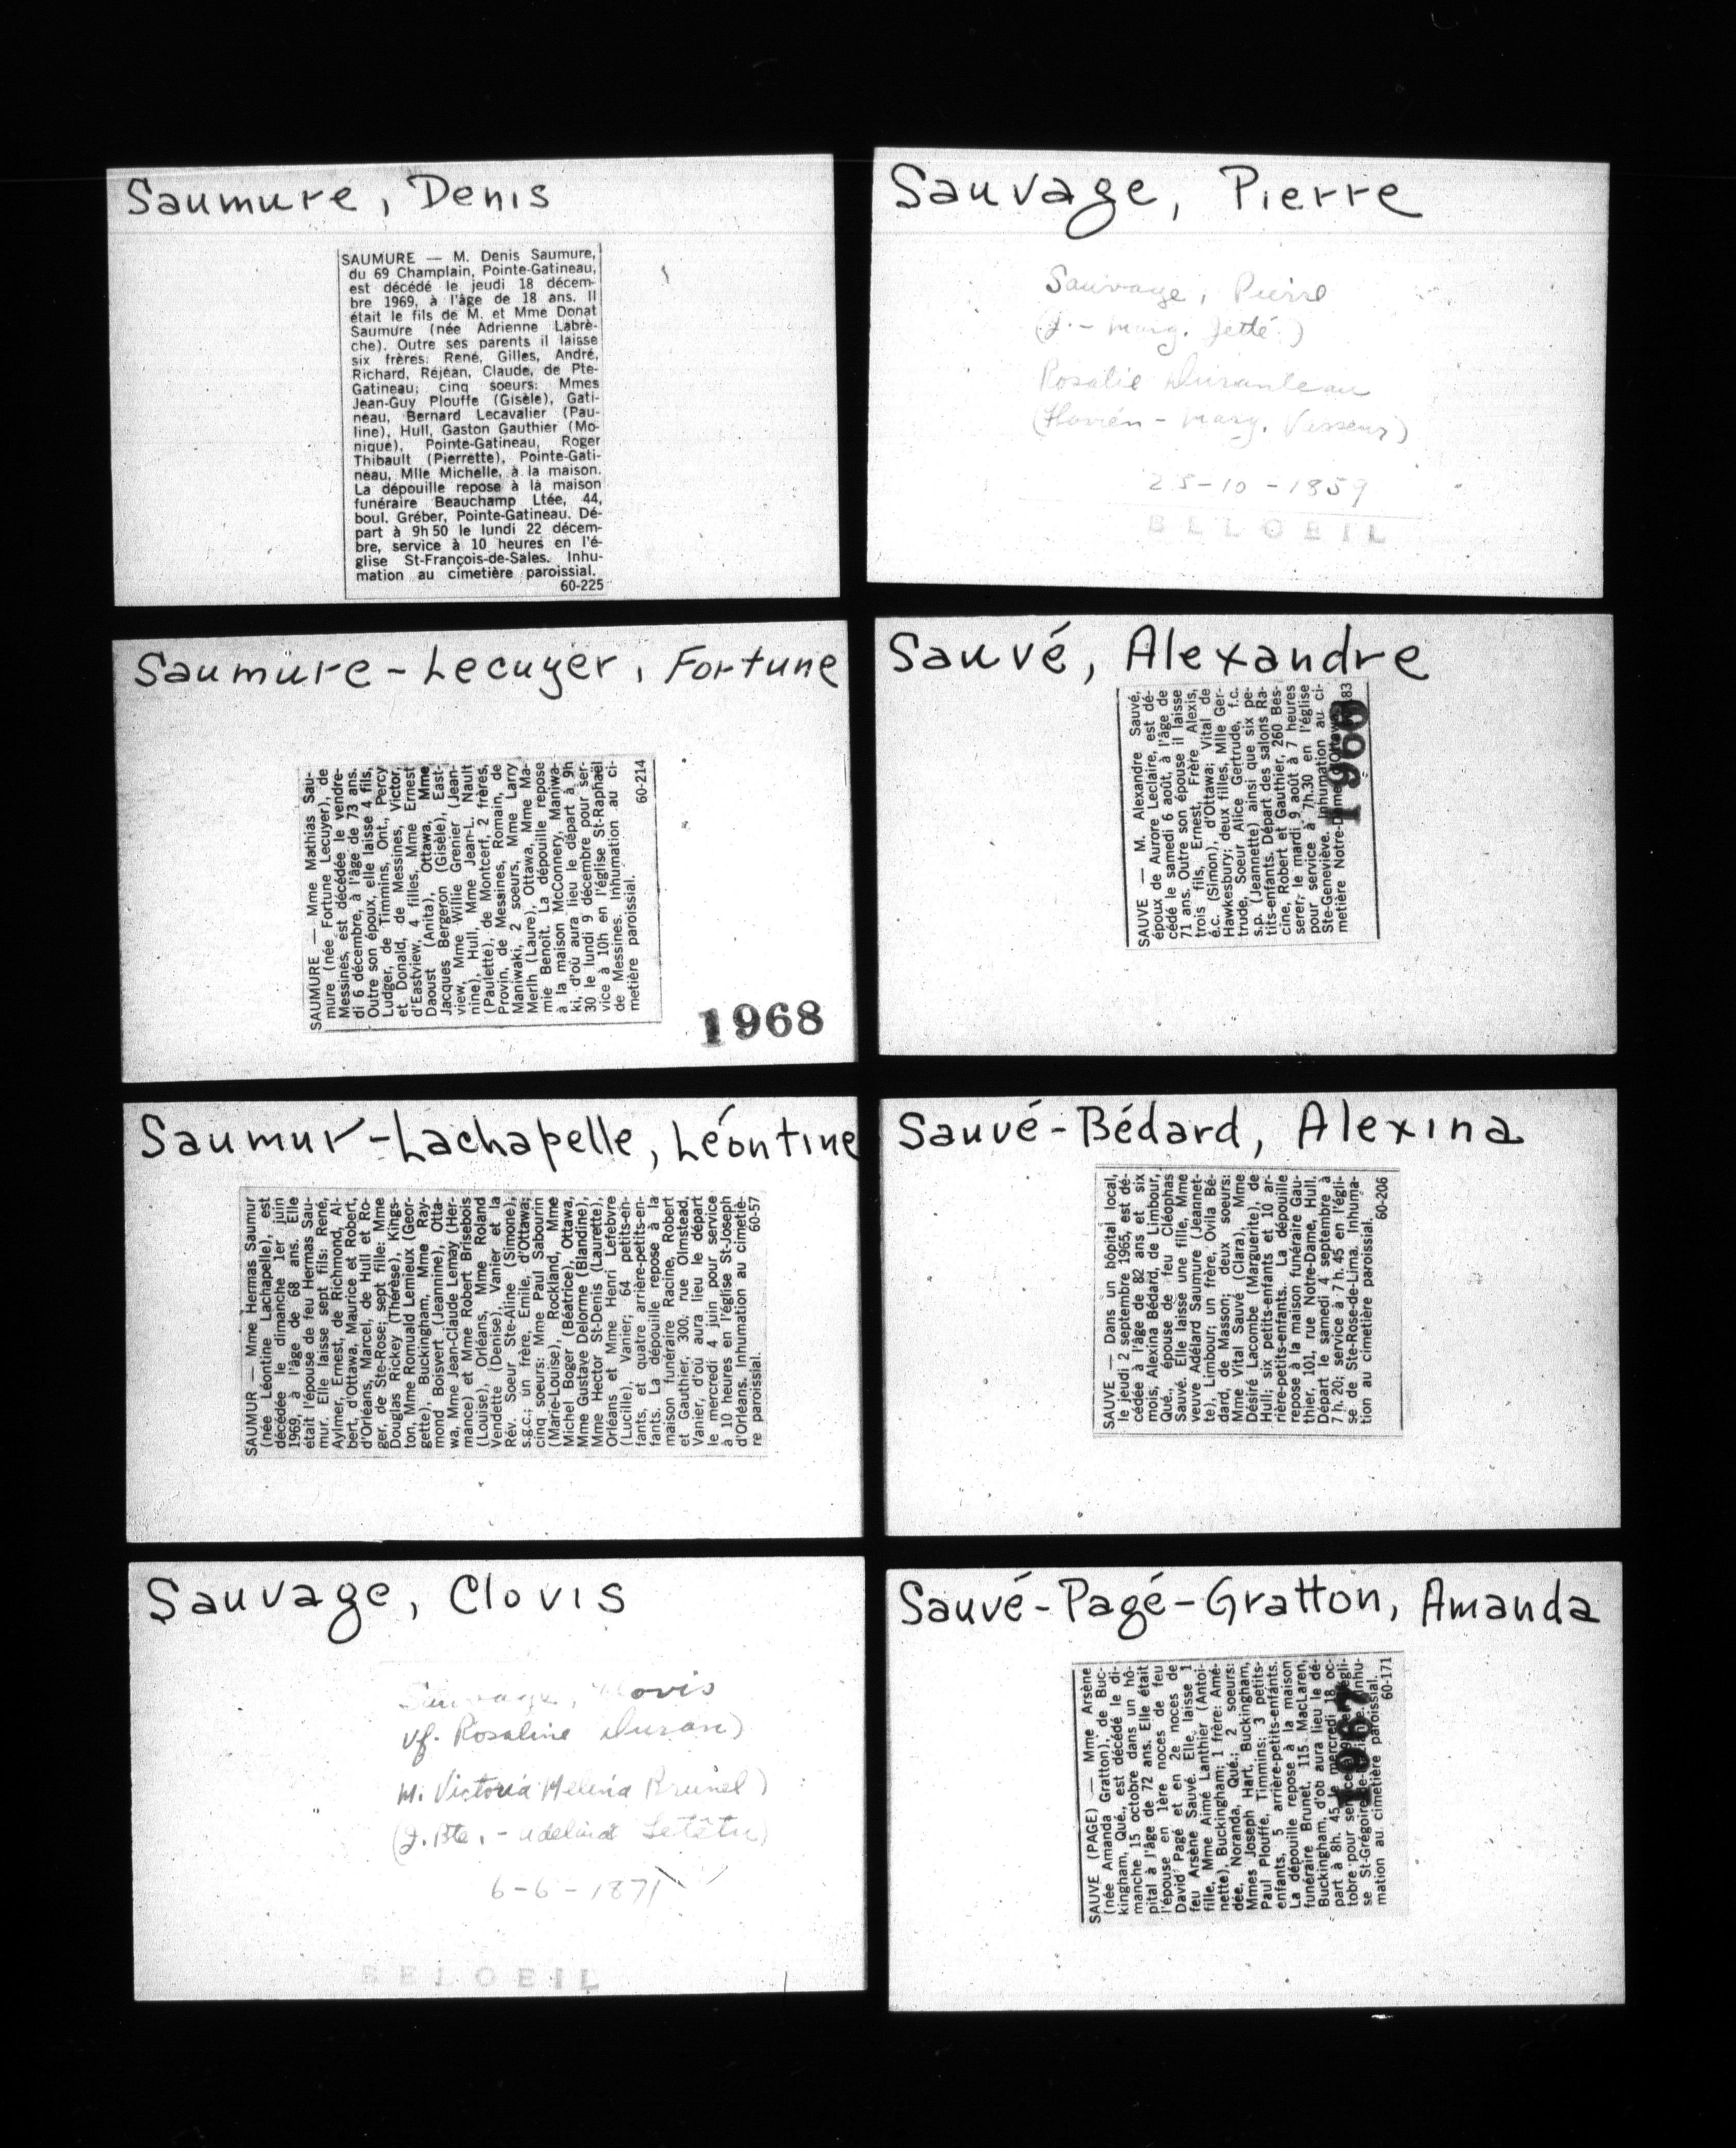 Saumure, Denis
SAUMURE — M. Denis Saumure,
du 69 Champlain, Pointe-Gatineau,
est décédé le jeudi 18 décem-
bre 1969, à l'âge de 18 ans. Il
était le fils de M. et Mme Donat
Saumure (née Adrienne Labrè-
che). Outre ses parents il laisse
six frères: René, Gilles, André,
Richard, Réjean, Claude, de Pte-
Gatineau; cinq soeurs: Mmes
Jean-Guy Plouffe (Gisèle), Gati-
neau, Bernard Lecavalier (Pau-
line), Hull, Gaston Gauthier (Mo-
nique), Pointe-Gatineau, Roger
Thibault (Pierrette), Pointe-Gati-
neau, Mlle Michelle, à la maison.
La dépouille repose à la maison
funéraire Beauchamp Ltée, 44,
boul. Gréber, Pointe-Gatineau. Dé-
part à 9h 50 le lundi 22 décem-
bre, service à 10 heures en l'é-
glise St-François-de-Sales. Inhu-
mation au cimetière paroissial.
60-225
Saumure-Lecuyer, Fortune
SAUMURE — Mme Mathias Sau-
mure (née Fortune Lecuyer), de
Messines, est décédée le vendre-
di 6 décembre, à l'âge de 73 ans.
Outre son époux, elle laisse 4 fils,
Ludger, de Timmins, Ont., Percy
et Donald, de Messines, Victor,
d'Eastview, 4 filles, Mme Ernest
Daoust (Anita), Ottawa, Mme
Jacques Bergeron (Gisèle), East-
view, Mme Willie Grenier (Jean-
nine), Hull, Mme Jean-L. Nault
(Paulette), de Montcerf, 2 frères,
Provin, de Messines, Romain, de
Maniwaki, 2 soeurs, Mme Larry
Merlh (Laure), Ottawa, Mme Ma-
mie Benoît. La dépouille repose
à la maison McConnery, Maniwa-
ki, d'où aura lieu le départ à 9h
30 le lundi 9 décembre pour ser-
vice à 10h en l'église St-Raphaël
de Messines. Inhumation au ci-
metière paroissial.
60-214
1968
Saumur-Lachapelle, Léontine
SAUMUR — Mme Hermas Saumur
(née Léontine Lachapelle), est
décédée le dimanche 1er juin
1969, à l'âge de 68 ans. Elle
était l'épouse de feu Hermas Sau-
mur. Elle laisse sept fils: René,
Aylmer, Ernest, de Richmond, Al-
bert, d'Ottawa, Maurice et Robert,
d'Orléans, Marcel, de Hull et Ro-
ger, de Ste-Rose; sept fille: Mme
Douglas Rickey (Thérèse), Kings-
ton, Mme Romuald Lemieux (Geor-
gette), Buckingham, Mme Ray-
mond Boisvert (Jeannine), Otta-
wa, Mme Jean-Claude Lemay (Her-
mance) et Mme Robert Brisebois
(Louise), Orléans, Mme Roland
Vendette (Denise), Vanier et la
Rév. Soeur Ste-Aline (Simone),
s.g.c.; un frère, Emile, d'Ottawa;
cinq soeurs: Mme Paul Sabourin
(Marie-Louise), Rockland, Mme
Michel Boger (Béatrice), Ottawa,
Mme Gustave Delorme (Blandine),
Mme Hector St-Denis (Laurette),
Orléans et Mme Henri Lefebvre
(Lucille), Vanier; 64 petits-en-
fants, et quatre arrière-petits-en-
fants. La dépouille repose à la
maison funéraire Racine, Robert
et Gauthier, 300, rue Olmstead,
Vanier, d'où aura lieu le départ
le mercredi 4 juin pour service
à 10 heures en l'église St-Joseph
d'Orléans. Inhumation au cimetiè-
re paroissial.
60-57
Sauvage, Clovis
Sauvage, Clovis
Vf. Rosaline Duran)
M. Victoria Melina Brunel)
(J. Bte. - Adelaid Letêtu)
6-6-1871
BELOEIL
Sauvage, Pierre
Sauvage, Pierre
(J. - Marg. Jetté.)
Rosalie Duranleau
(Flavien - Marg. Vasseur)
25-10-1859
BELOEIL
Sauvé, Alexandre
SAUVE — M. Alexandre Sauvé,
époux de Aurore Leclaire, est dé-
cédé le samedi 6 août, à l'âge de
71 ans. Outre son épouse il laisse
trois fils, Ernest, Frère Alexis,
é.c. (Simon), d'Ottawa; Vital de
Hawkesbury; deux filles, Mlle Ger-
trude, Soeur Alice Gertrude, f.c.
s.p. (Jeannette) ainsi que six pe-
tits-enfants. Départ des salons Ra-
cine, Robert et Gauthier, 260 Bes-
serer, le mardi 9 août à 7 heures
pour service à 7h.30 en l'église
Ste-Geneviève. Inhumation au ci-
metière Notre-Dame d'Ottawa.
83
1966
Sauvé-Bédard, Alexina
SAUVE — Dans un hôpital local,
le jeudi 2 septembre 1965, est dé-
cédée à l'âge de 82 ans et six
mois, Alexina Bédard, de Limbour,
Qué., épouse de feu Cléophas
Sauvé. Elle laisse une fille, Mme
veuve Adélard Saumure (Jeannet-
te), Limbour; un frère, Ovila Bé-
dard, de Masson; deux soeurs:
Mme Vital Sauvé (Clara), Mme
Désiré Lacombe (Marguerite), de
Hull; six petits-enfants et 10 ar-
rière-petits-enfants. La dépouille
repose à la maison funéraire Gau-
thier, 101, rue Notre-Dame, Hull.
Départ le samedi 4 septembre à
7 h. 20; service à 7 h. 45 en l'égli-
se de Ste-Rose-de-Lima. Inhuma-
tion au cimetière paroissial.
60-206
Sauvé-Pagé-Gratton, Amanda
SAUVE (PAGE) — Mme Arsène
(née Amanda Gratton), de Buc-
kingham, Qué., est décédé le di-
manche 15 octobre dans un hô-
pital à l'âge de 72 ans. Elle était
l'épouse en 1ère noces de feu
David Pagé et en 2e noces de
feu Arsène Sauvé. Elle laisse 1
fille, Mme Aimé Lanthier (Antoi-
nette), Buckingham; 1 frère: Amé-
dée, Noranda, Qué.; 2 soeurs:
Mmes Joseph Hart, Buckingham,
Paul Plouffe, Timmins; 3 petits-
enfants, 5 arrière-petits-enfants.
La dépouille repose à la maison
funéraire Brunet, 115 MacLaren,
Buckingham, d'où aura lieu le dé-
part à 8h. 45 le mercredi 18 oc-
tobre pour service égli-
se St-Grégoire Inhu-
mation au cimetière paroissial.
60-171
1967